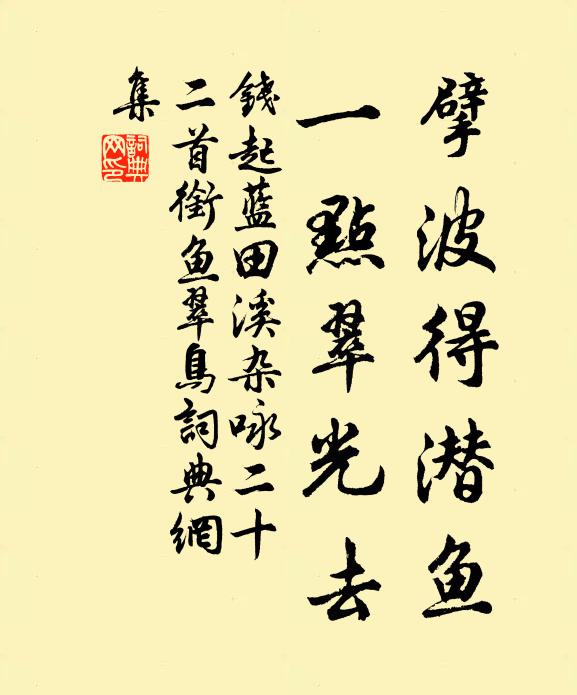 擘波得潜鱼
一點翠光去
錢起藍田溪杂咏二十
二首銜鱼翠鳥詞典網
集
詞典网印